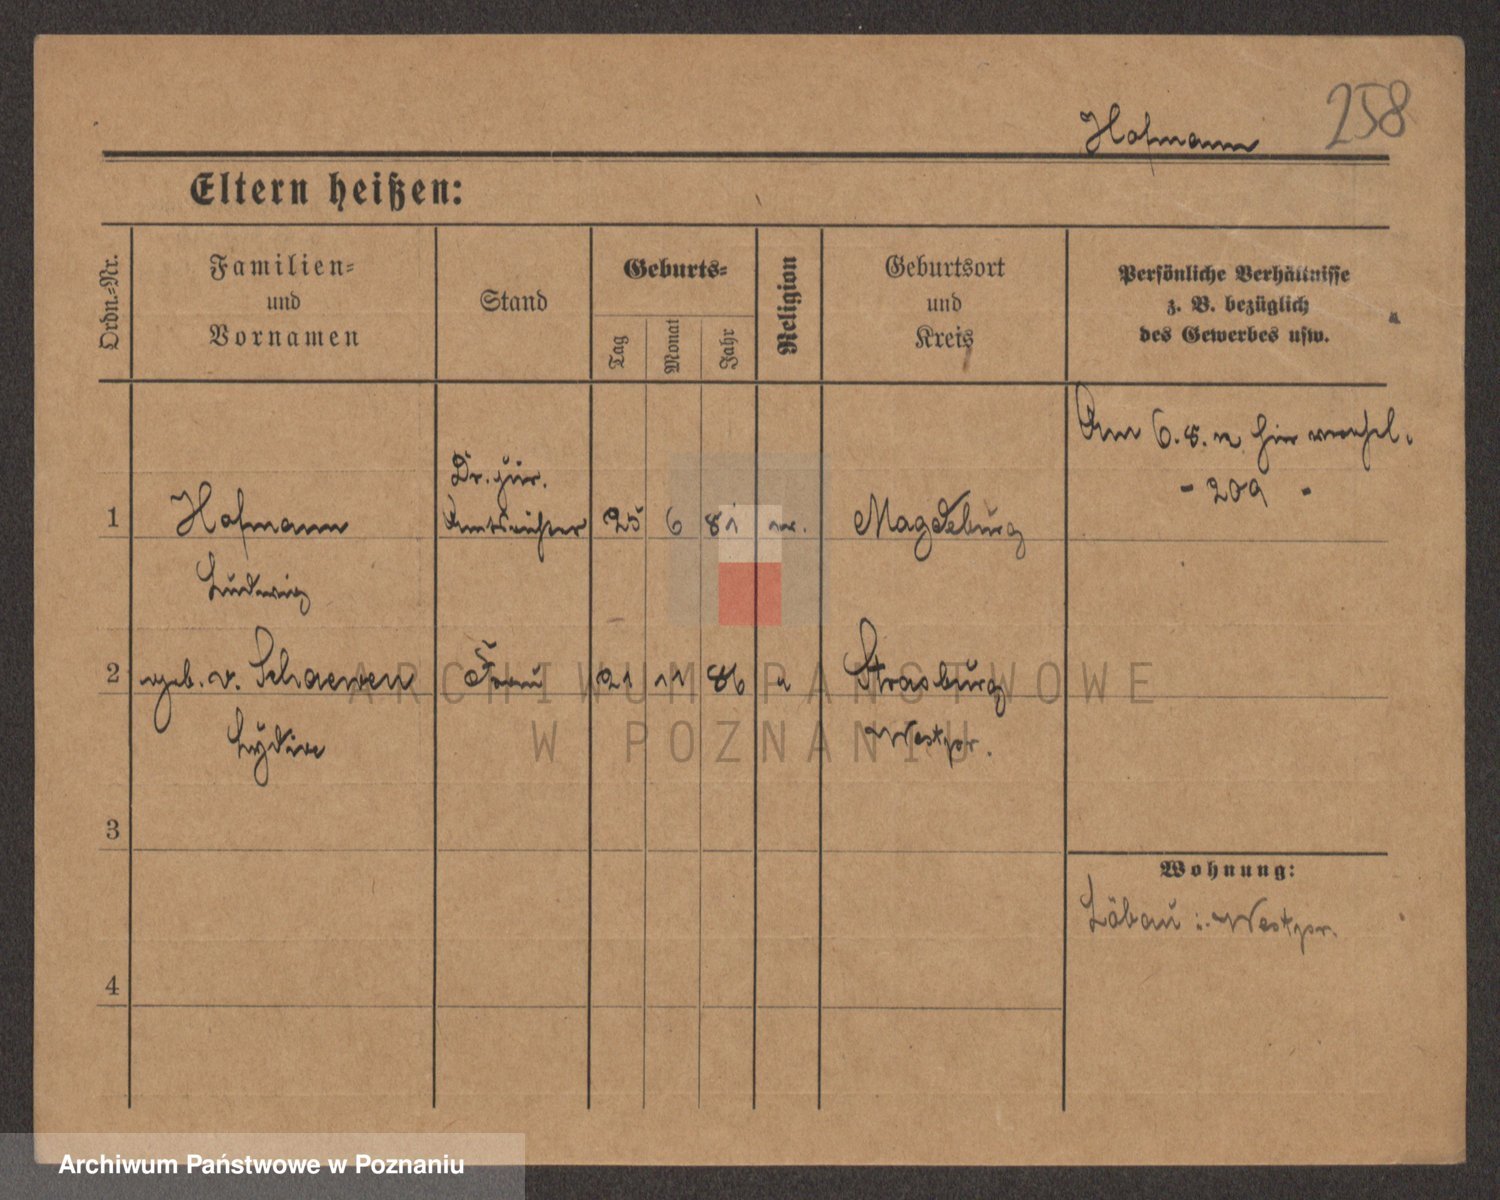 258
Hofmann
Eltern heißen:
Ordn.-Nr.
Familien-
und
Vornamen
Stand
Geburts-
Tag
Monat
Jahr
Religion
Geburtsort
und
Kreis
Persönliche Verhältnisse
z. B. bezüglich
des Gewerbes usw.
Am 6. 8. hier
- 209 -
1
Hofmann
Ludwig
Dr. jur.
Amtsrichter
25 6 81
Magdeburg
2
geb. v. Schaewen
Lydia
Frau
21 11 86
Strasburg
Westpr.
3
Wohnung:
Löbau i. Westpr.
4
ARCHIWUM PAŃSTWOWE
W POZNANIU
Archiwum Państwowe w Poznaniu